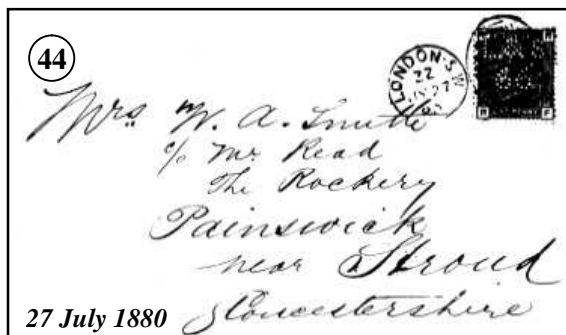 44
LONDON·S.W
22
JY 27
80
Mrs W. A. Smith
c/o Mr. Read
The Rockery
Painswick
near Stroud
Gloucestershire
27 July 1880